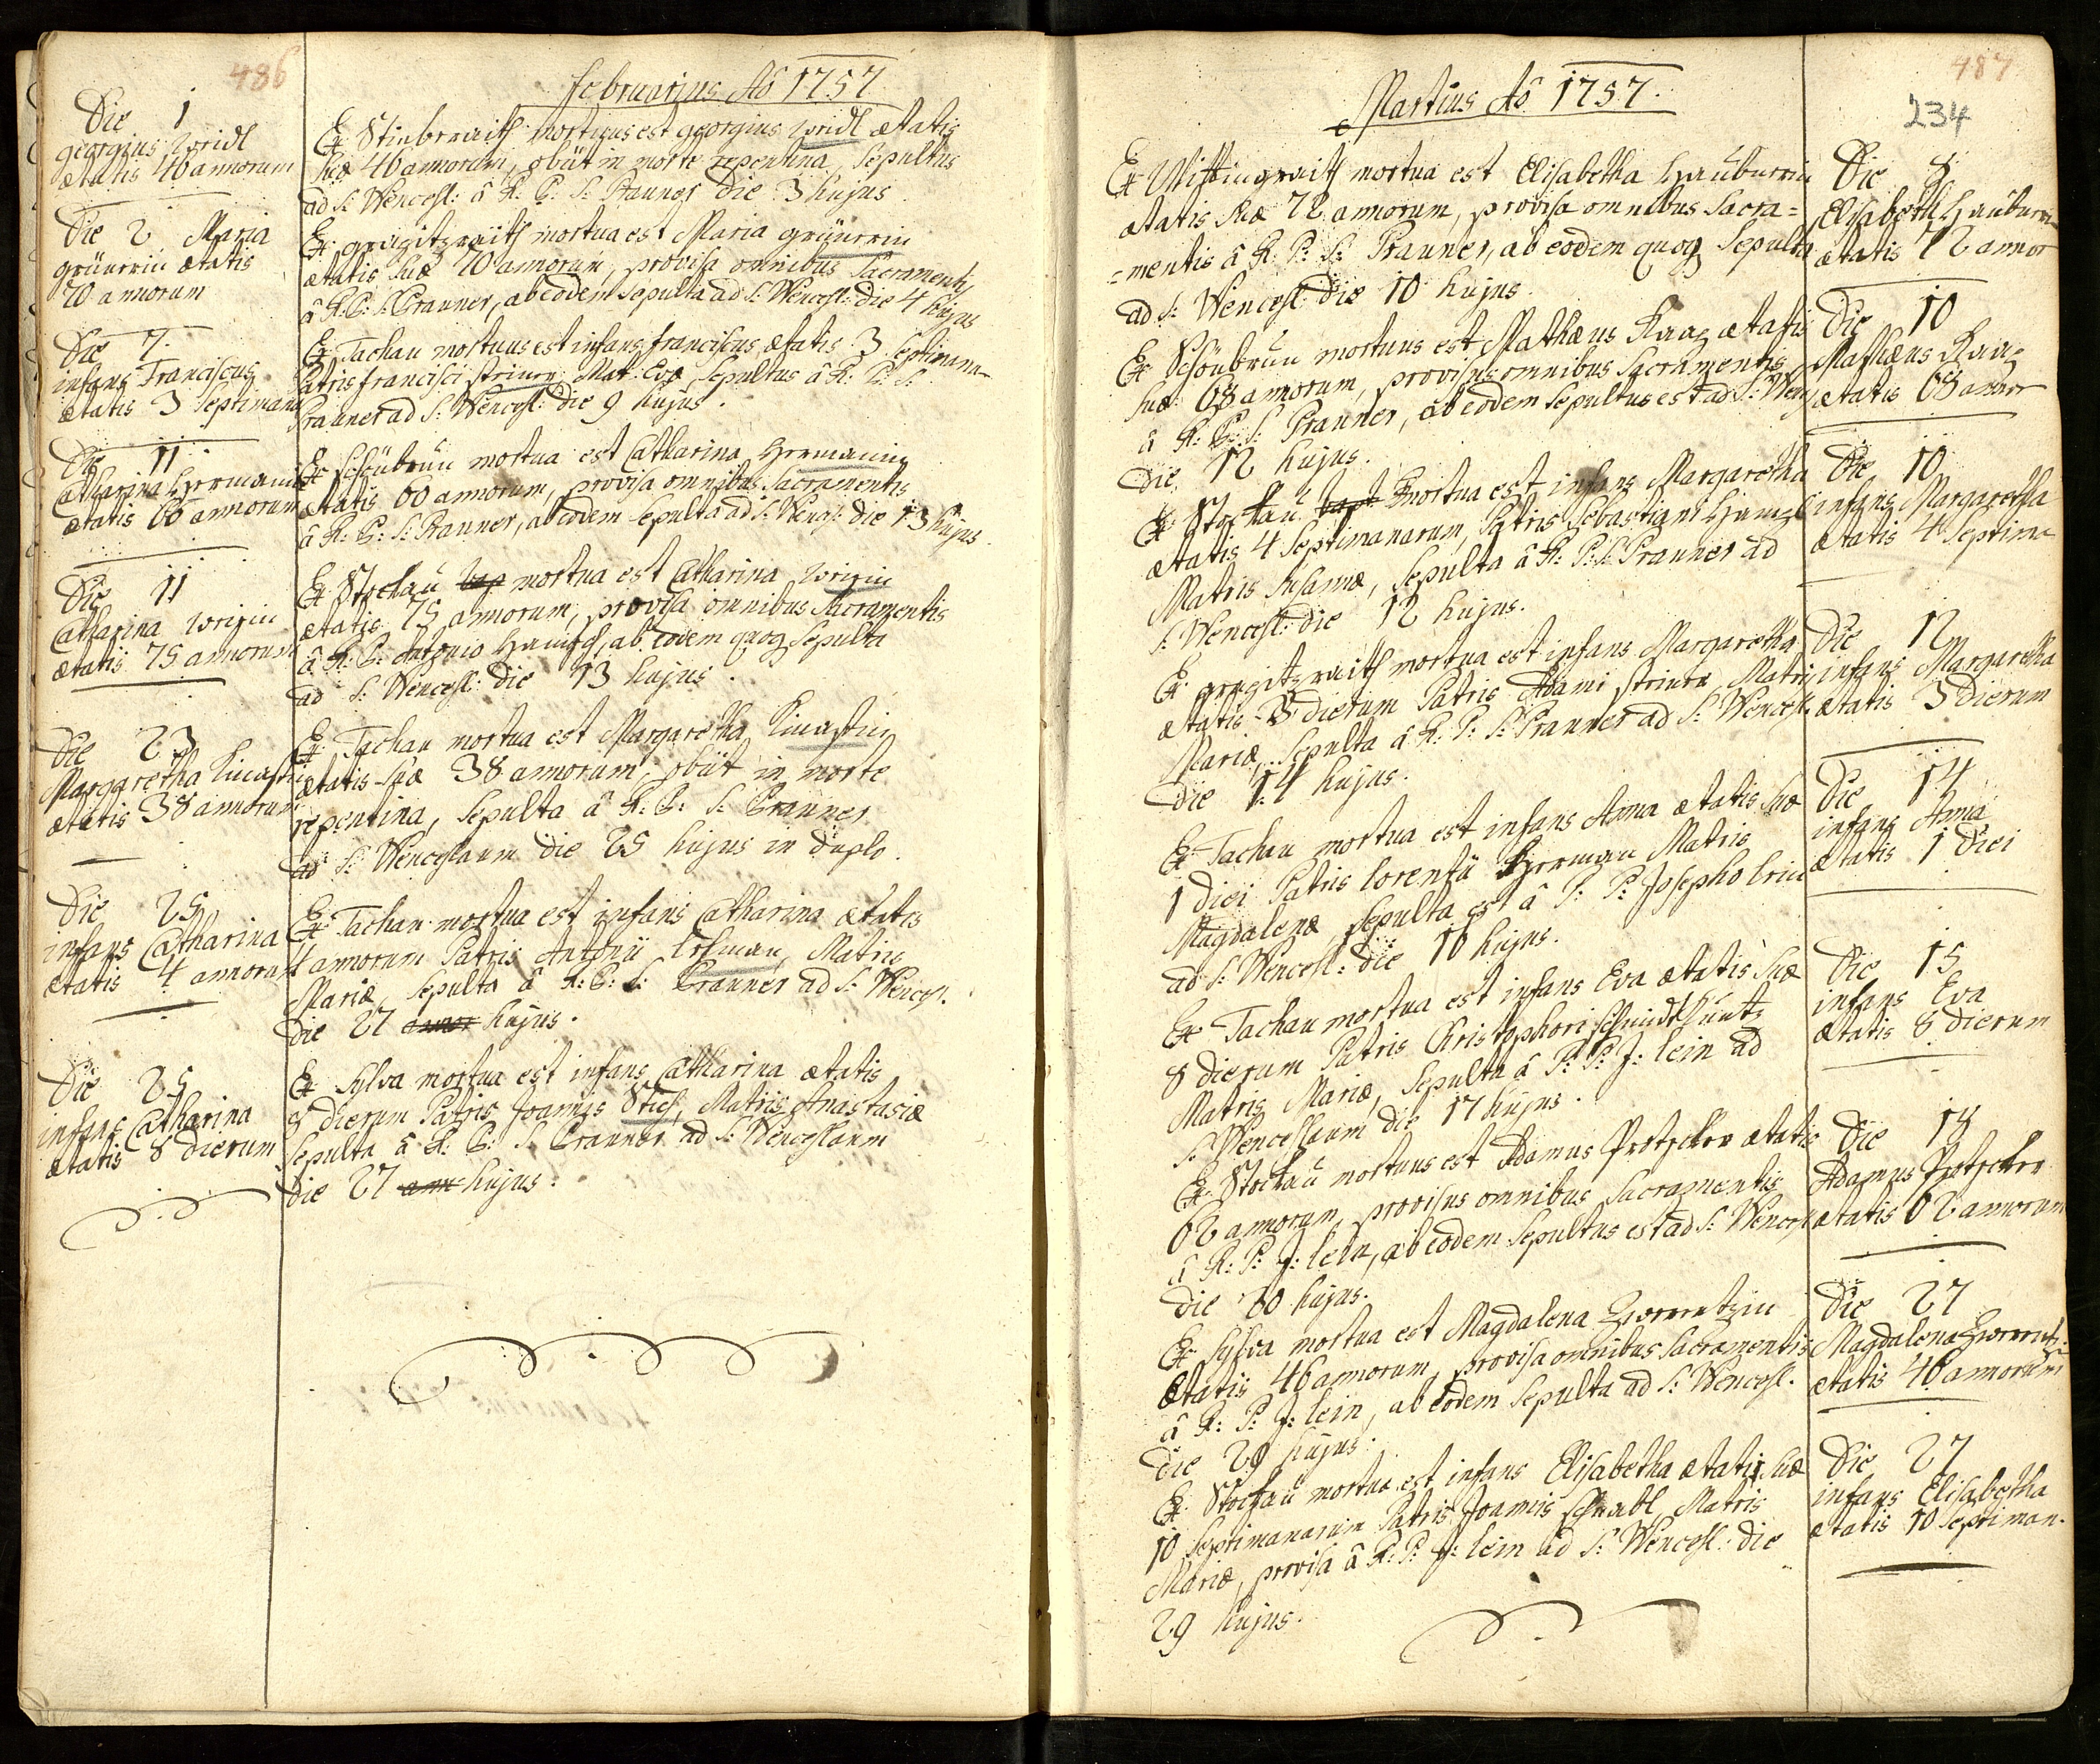 486
Februarius Aõ 1757
Die 1
georgius
ætatis 46 annorum
Ex mortuus est georgius ætatis
suæ 46 annorum, obiit in morte repentina, Sepultus
ad S: Wencesl: â R: P: S: Pranner die 3 hujus
Die 2 Maria
grünerin ætatis
70 annorum
Ex mortua est Maria grünerin
ætatis suæ 70 annorum, provisa omnibus Sacramentis
â R: P: S: Pranner, ab eodem sepulta ad S: Wencesl: die 4 hujus
Die 7
infans Franciscus
ætatis 3 septimana
Ex Tachau mortuus est infans franciscus ætatis 3 Septimana
Patris francisci Mat: Evæ Sepultus â R: P: S:
Pranner ad S: Wencesl: die 9 hujus.
Die 11
Catharina Hermanin
ætatis 60 annorum
Ex Schönbrun mortua est Catharina Hermanin
ætatis 60 annorum, provisa omnibus Sacramentis
â R: P: S: Pranner, ab eodem Sepulta ad S: Wencesl: die 13 hujus.
Die 11
Catharina
ætatis 75 annorum
Ex Stockau bap mortua est Catharina
ætatis 75 annorum, provisa omnibus Sacramentis
â R: P: Antonio Hanisch, ab eodem quoq Sepulta
ad S: Wencesl: die 13 hujus.
Die 23
Margaretha
ætatis 38 annorum
Ex Tachau mortua est Margaretha
ætatis suæ 38 annorum, obiit in morte
repentina, Sepulta â R: P: S: Pranner
ad S: Wenceslaum die 25 hujus in duplo.
Die 25
infans Catharina
ætatis 4 annorum
Ex Tachau mortua est infans Catharina ætatis
4 annorum Patris Antonii Matris
Mariæ, Sepulta â R: P: S: Pranner ad S: Wencesl.
die 27 annor hujus.
Die 25
infans Catharina
ætatis 8 dierum
Ex Sylva mortua est infans Catharina ætatis
8 dierum Patris Joannis Matris Anastasiæ
Sepulta â R: P: S: Pranner ad S: Wenceslaum
die 27 ann hujus.
487
234
Martius Aõ 1757.
Ex mortua est Elisabetha Hauburin
ætatis suæ 72 annorum, provisa omnibus Sacra=
=mentis â R: P: S: Pranner, ab eodem quoq Sepulta
ad S: Wencesl: die 10 hujus.
Die 8
Elisabeth Hauburin
ætatis 72 annor
Ex Schönbrun mortuus est Mathæus Kraaz ætatis
suæ 68 annorum, provisus omnibus Sacramentis
â R: P: S: Pranner, ab eodem Sepultus est ad S: Wenc
die 12 hujus.
Die 10
Mathæus Kraaz
ætatis 68 annor
Ex Stockau bapt mortua est infans Margaretha
ætatis 4 Septimanarum, Patris Sebastiani
Matris Susannæ, Sepulta â R: P: S: Pranner ad
S: Wencesl: die 12 hujus.
Die 10
infans Margaretha
ætatis 4 Septima
Ex mortua est infans Margaretha
ætatis 3 dierum Patris Adami Matris
Mariæ, Sepulta â R: P: S: Pranner ad S: Wencesl.
die 14 hujus.
Die 12
infans Margaretha
ætatis 3 dierum
Ex Tachau mortua est infans Anna ætatis suæ
1 diei Patris lorentii Herman Matris
Magdalenæ, Sepulta est â P: P: Josepho lein
ad S: Wencesl: die 16 hujus.
Die 14
infans Anna
ætatis 1 diei
Ex Tachau mortua est infans Eva ætatis suæ
8 dierum Patris Christophori
Matris Mariæ, Sepulta â P: P: J: lein ad
S: Wenceslaum die 17 hujus.
Die 15
infans Eva
ætatis 8 dierum
Ex Stockau mortuus est Adamus ætatis
62 annorum, provisus omnibus Sacramentis
â R: P: J: lein, ab eodem Sepultus est ad S: Wencesl
die 20 hujus.
Die 18
Adamus
ætatis 62 annorum
Ex Sylva mortua est Magdalena
Ætatis 46 annorum, provisa omnibus Sacramentis
â R: P: J: lein, ab eodem Sepulta ad S: Wencesl.
die 29 hujus.
Die 27
Magdalena
ætatis 46 annorum
Ex Stockau mortua est infans Elisabetha ætatis suæ
10 Septimanarum Patris Joannis Schnabl Matris
Mariæ, provisa â R: P: J: lein ad S: Wencesl: die
29 hujus.
Die 27
infans Elisabetha
ætatis 10 Septiman.